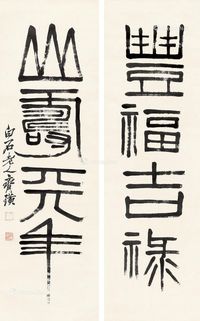 豐福吉祿
山壽天年
白石老人齊璜